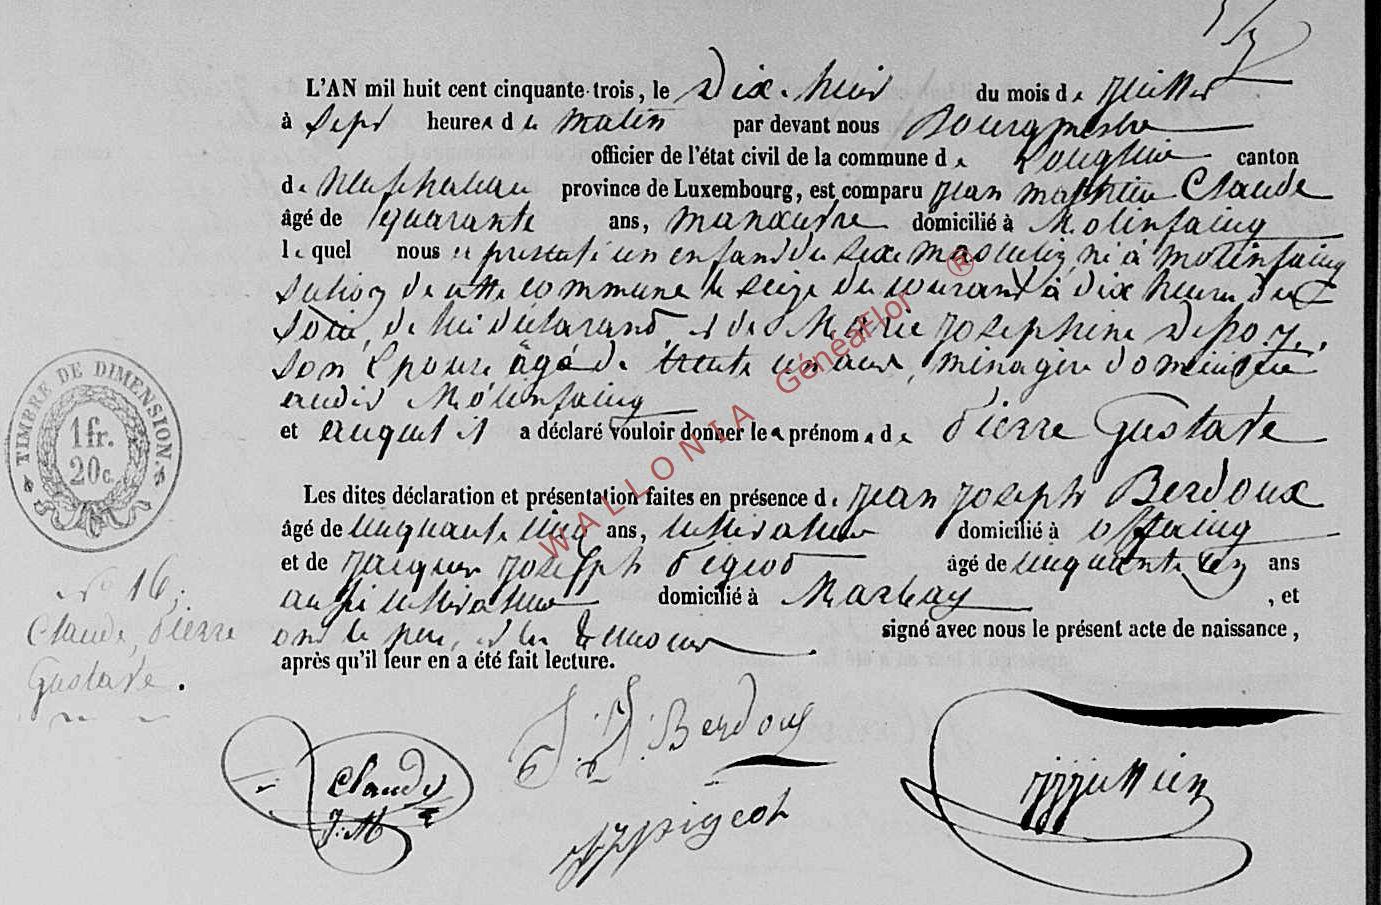 L'AN mil huit cent cinquante-trois, le Dix-huit du mois de juillet
à Sept heures du matin par devant nous Bourgmestre
officier de l'état civil de la commune de Longlier canton
de Neufchateau province de Luxembourg, est comparu Jean Mathieu Claude
âgé de quarante ans, manœuvre domicilié à Molinfaing
lequel nous a présenté un enfant du sexe masculin, né à Molinfaing
Section de cette commune le seize du courant à dix heures du
soir, de lui déclarant et de Marie Josephine
son épouse âgée de trente un ans, ménagère domiciliée
audit Molinfaing
et auquel il a déclaré vouloir donner les prénoms de Pierre Gustave
Les dites déclaration et présentation faites en présence de Jean Joseph Berdoux
âgé de cinquante cinq ans, cultivateur domicilié à Offaing
et de Jacques Joseph Pigeot âgé de cinquante ans
aussi cultivateur domicilié à Marbay, et
ont le père, et les témoins signé avec nous le présent acte de naissance,
après qu'il leur en a été fait lecture.
TIMBRE DE DIMENSION
1 fr.
20 c.
N° 16.
Claude, Pierre
Gustave.
Claude
J. M
J. J. Berdoux
JJ pigeot
WALLONIA GénéaFlor ®